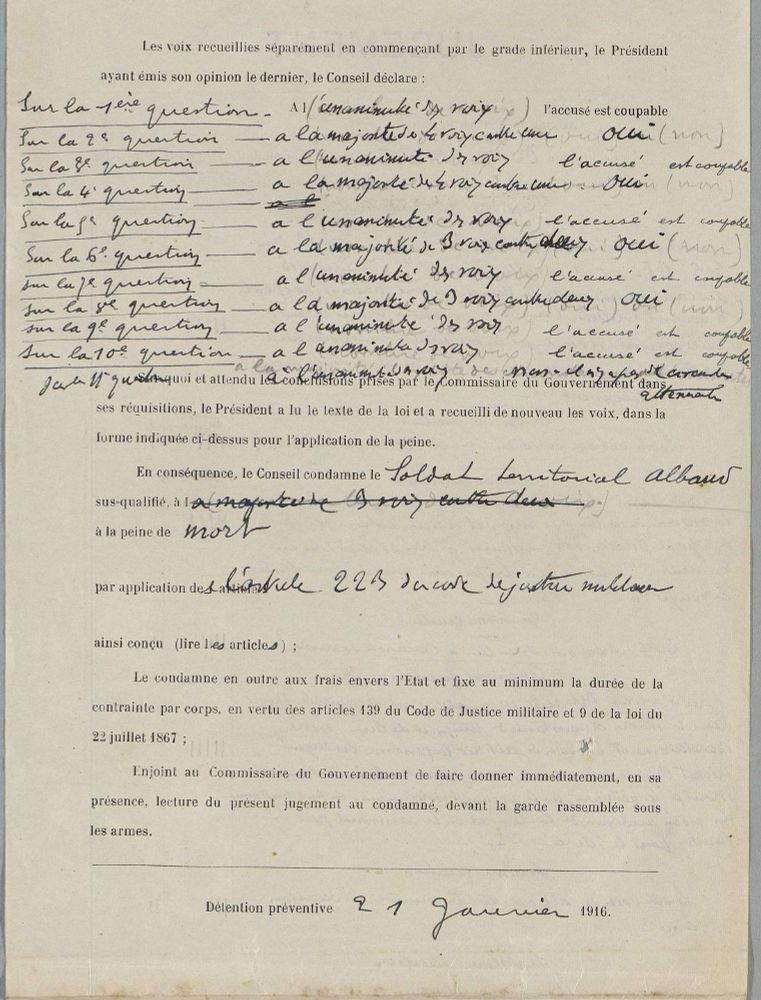 Les voix recueillies séparément en commençant par le grade inférieur, le Président
ayant émis son opinion le dernier, le Conseil déclare :
Sur la 1ère question - A l'unanimité des voix l'accusé est coupable
Sur la 2e question — a la majorité de 4 voix contre une oui (non)
Sur la 3e question — a l'unanimité des voix l'accusé est coupable
Sur la 4e question — a la majorité de 4 voix contre une oui
Sur la 5e question — a l'unanimité des voix l'accusé est coupable
Sur la 6e question — a la majorité de 3 voix contre deux oui (non)
Sur la 7e question — a l'unanimité des voix l'accusé est coupable
Sur la 8e question — a la majorité de 3 voix contre deux oui
Sur la 9e question — a l'unanimité des voix l'accusé est coupable
Sur la 10e question — a l'unanimité des voix l'accusé est coupable
Sur la 11e question a l'unanimité des voix non il n'y a pas de circonstances
atténuantes
Sur quoi et attendu les conclusions prises par le Commissaire du Gouvernement dans
ses réquisitions, le Président a lu le texte de la loi et a recueilli de nouveau les voix, dans la
forme indiquée ci-dessus pour l'application de la peine.
En conséquence, le Conseil condamne le Soldat territorial Albaud
sus-qualifié, à la majorité de 3 voix contre deux
à la peine de mort
par application de l'article 223 du code de justice militaire
ainsi conçu (lire les articles) ;
Le condamne en outre aux frais envers l'Etat et fixe au minimum la durée de la
contrainte par corps, en vertu des articles 139 du Code de Justice militaire et 9 de la loi du
22 juillet 1867 ;
Enjoint au Commissaire du Gouvernement de faire donner immédiatement, en sa
présence, lecture du présent jugement au condamné, devant la garde rassemblée sous
les armes.
Détention préventive 21 Janvier 1916.